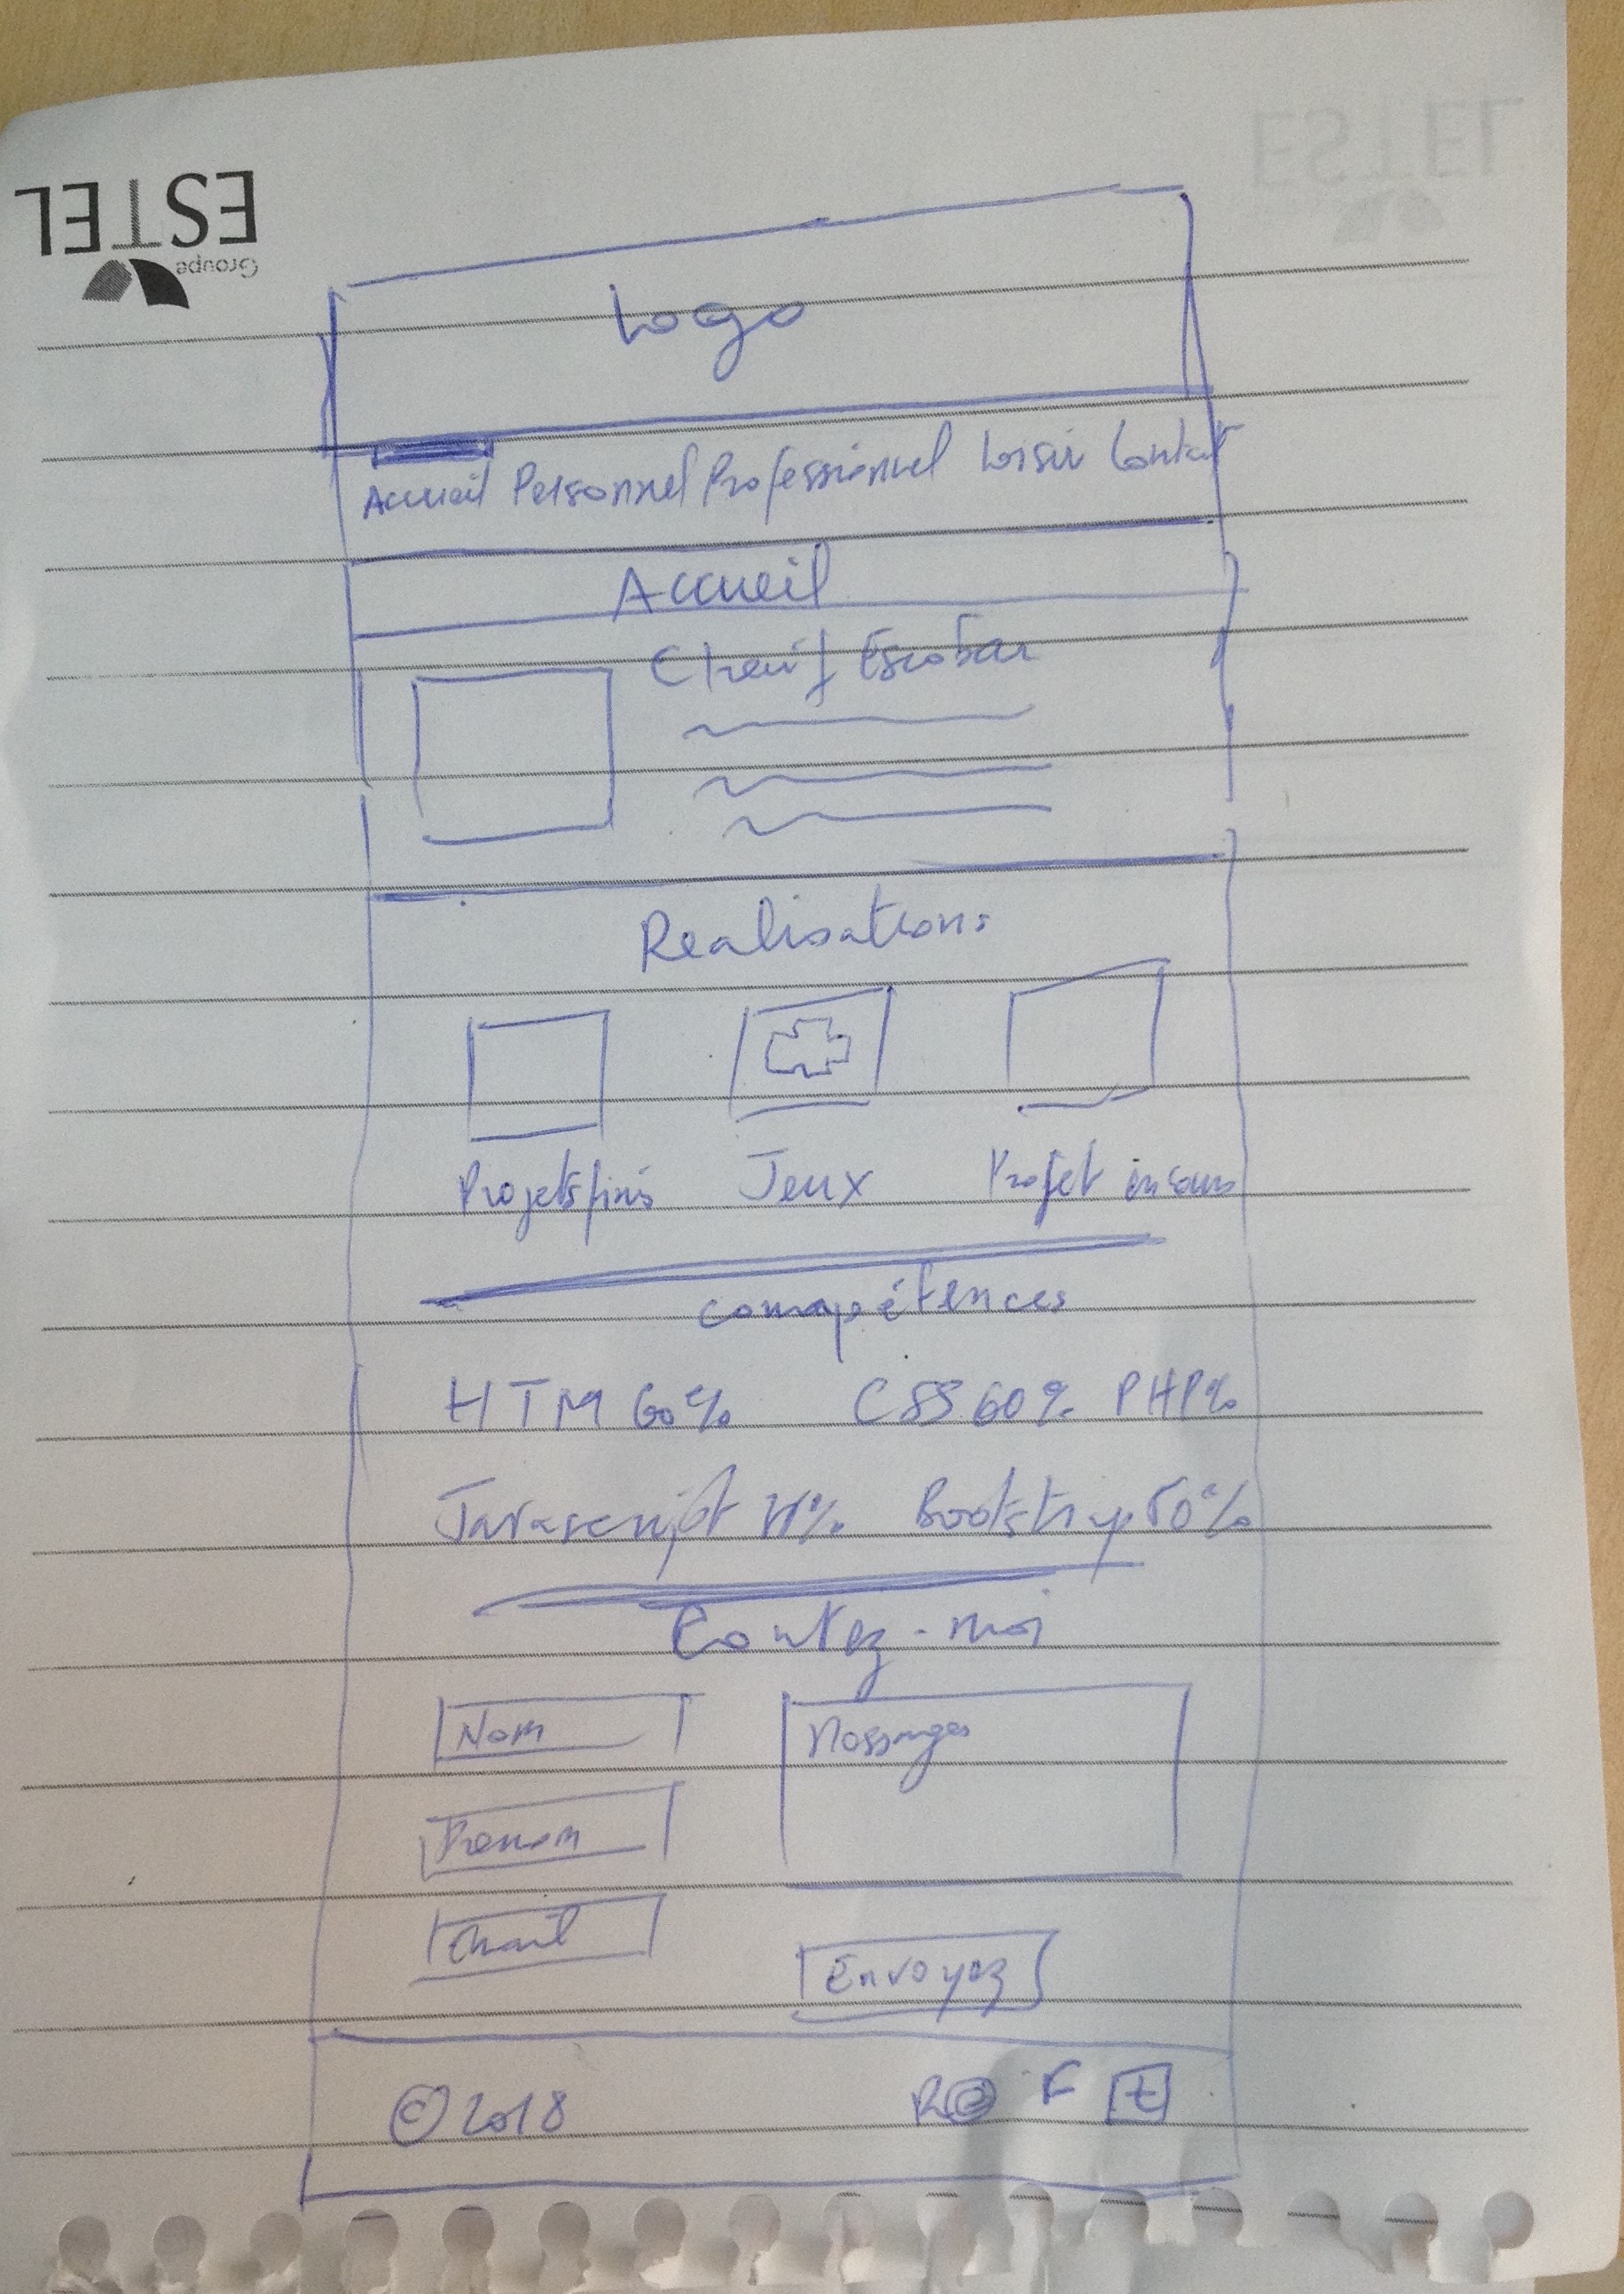 ESTEL
Groupe
ESTEL
Logo
Accueil Personnel Professionnel Loisir Contact
Accueil
Cherif Escobar
Realisations
Projets finis Jeux Projet en cours
compétences
HTM 60% CSS 60% PHP%
Javascript % Bootstrap 50%
Contez-moi
Nom
Messages
Prenom
Email
Envoyez
© 2018
F t